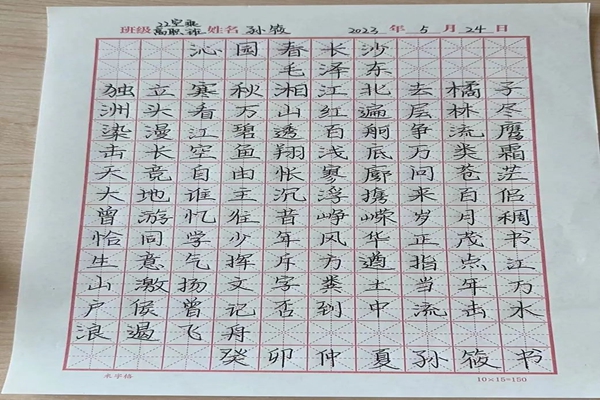 班级 22空乘高职班 姓名 孙筱 2023 年 5 月 24 日
沁园春长沙
毛泽东
独立寒秋湘江北去橘子
洲头看万山红遍层林尽
染漫江碧透百舸争流鹰
击长空鱼翔浅底万类霜
天竞自由怅寥廓问苍茫
大地谁主沉浮携来百侣
曾游忆往昔峥嵘岁月稠
恰同学少年风华正茂书
生意气挥斥方遒指点江
山激扬文字粪土当年万
户侯曾记否到中流击水
浪遏飞舟
癸卯仲夏孙筱书
米字格 10×15=150